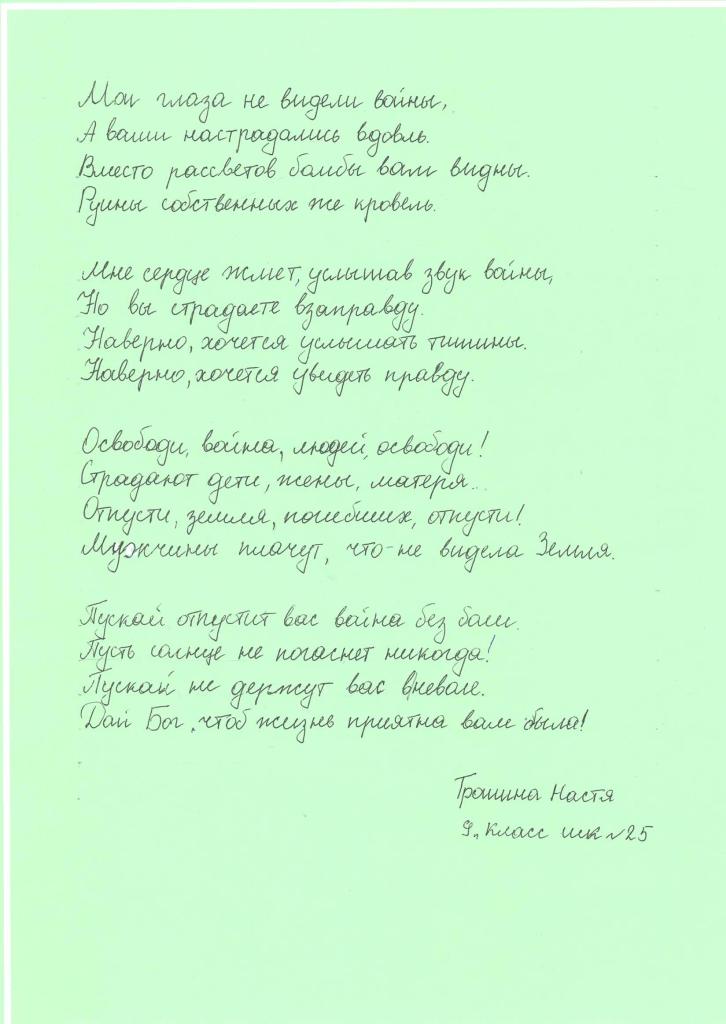 Мои глаза не видели войны,
А ваши настрадались вдовль.
Вместо рассветов бомбы вам видны.
Руины собственных же кровель.
Мне сердце жмет, услышав звук войны,
Но вы страдаете взаправду.
Наверно, хочется услышать тишины.
Наверно, хочется увидеть правду.
Освободи, война, людей, освободи!
Страдают дети, жены, матеря..
Отпусти, земля, погибших, отпусти!
Мужчины плачут, что не видела Земля.
Пускай отпустит вас война без боли.
Пусть солнце не погаснет никогда!
Пускай не держут вас вневоле.
Дай Бог, чтоб жизнь приятна вам была!
Настя
9 класс шк №25